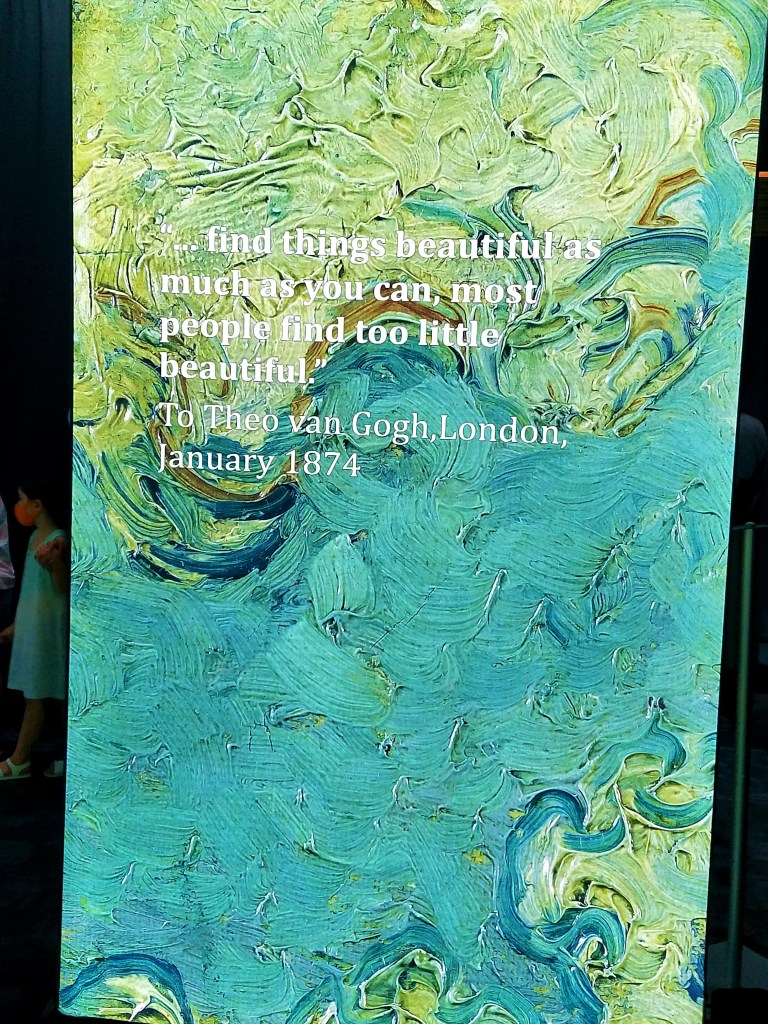 “... find things beautiful as
much as you can, most
people find too little
beautiful.”
To Theo van Gogh,London,
January 1874